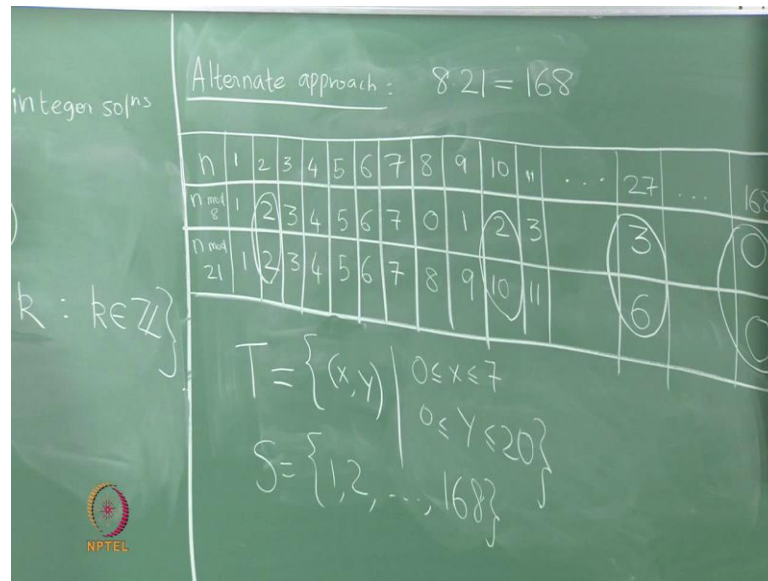 integer solns
)
k : k∈ℤ}
Alternate approach: 8·21 = 168
n 1 2 3 4 5 6 7 8 9 10 11 ... 27 ... 168
n mod 8 1 2 3 4 5 6 7 0 1 2 3 3 0
n mod 21 1 2 3 4 5 6 7 8 9 10 11 6 0
T = {(x,y) | 0≤x≤7
0≤y≤20}
S = {1,2, ..., 168}
NPTEL